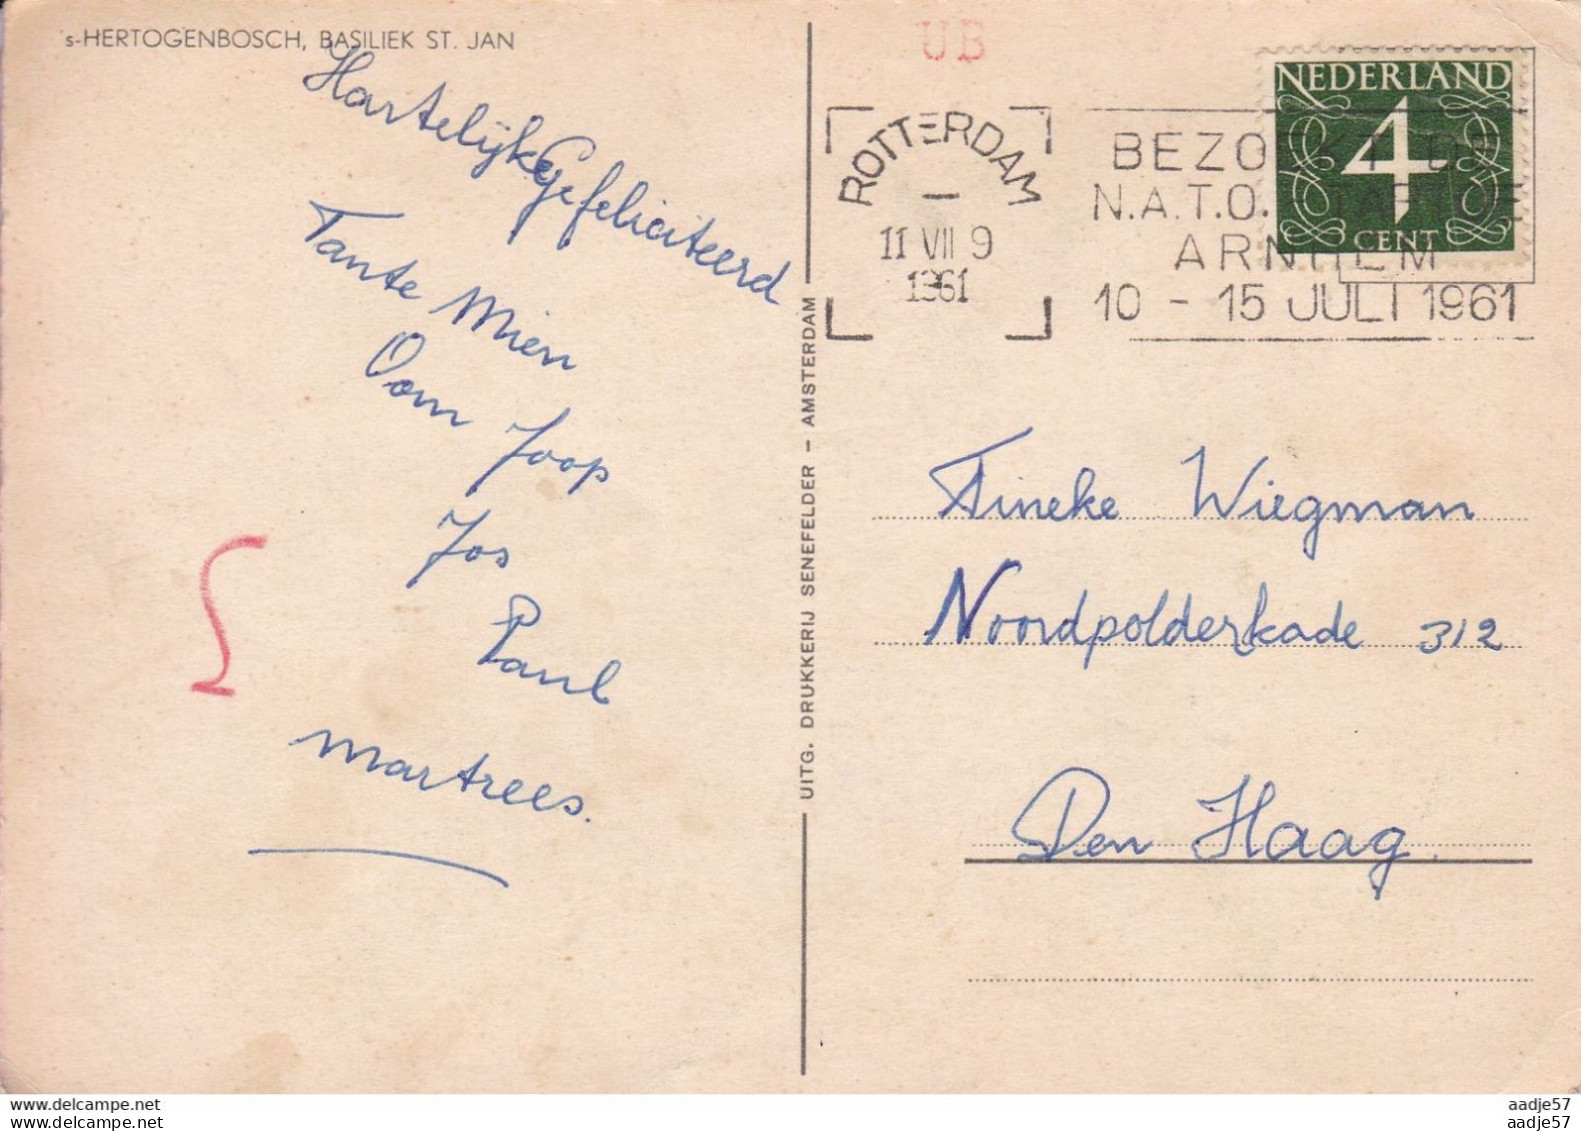 's-HERTOGENBOSCH, BASILIEK ST. JAN
Hartelijke gefeliciteerd
Tante Mien
Oom Joop
Jos
Paul
Martrees.
UITG. DRUKKERIJ SENEFELDER - AMSTERDAM
UB
ROTTERDAM
11 VII 9
1961
BEZOEKT DE
N.A.T.O.
ARNHEM
10 - 15 JULI 1961
NEDERLAND
4
CENT
Tineke Wiegman
Noordpolderkade 312
Den Haag.
www.delcampe.net
www.delcampe.net
aadje57
aadje57